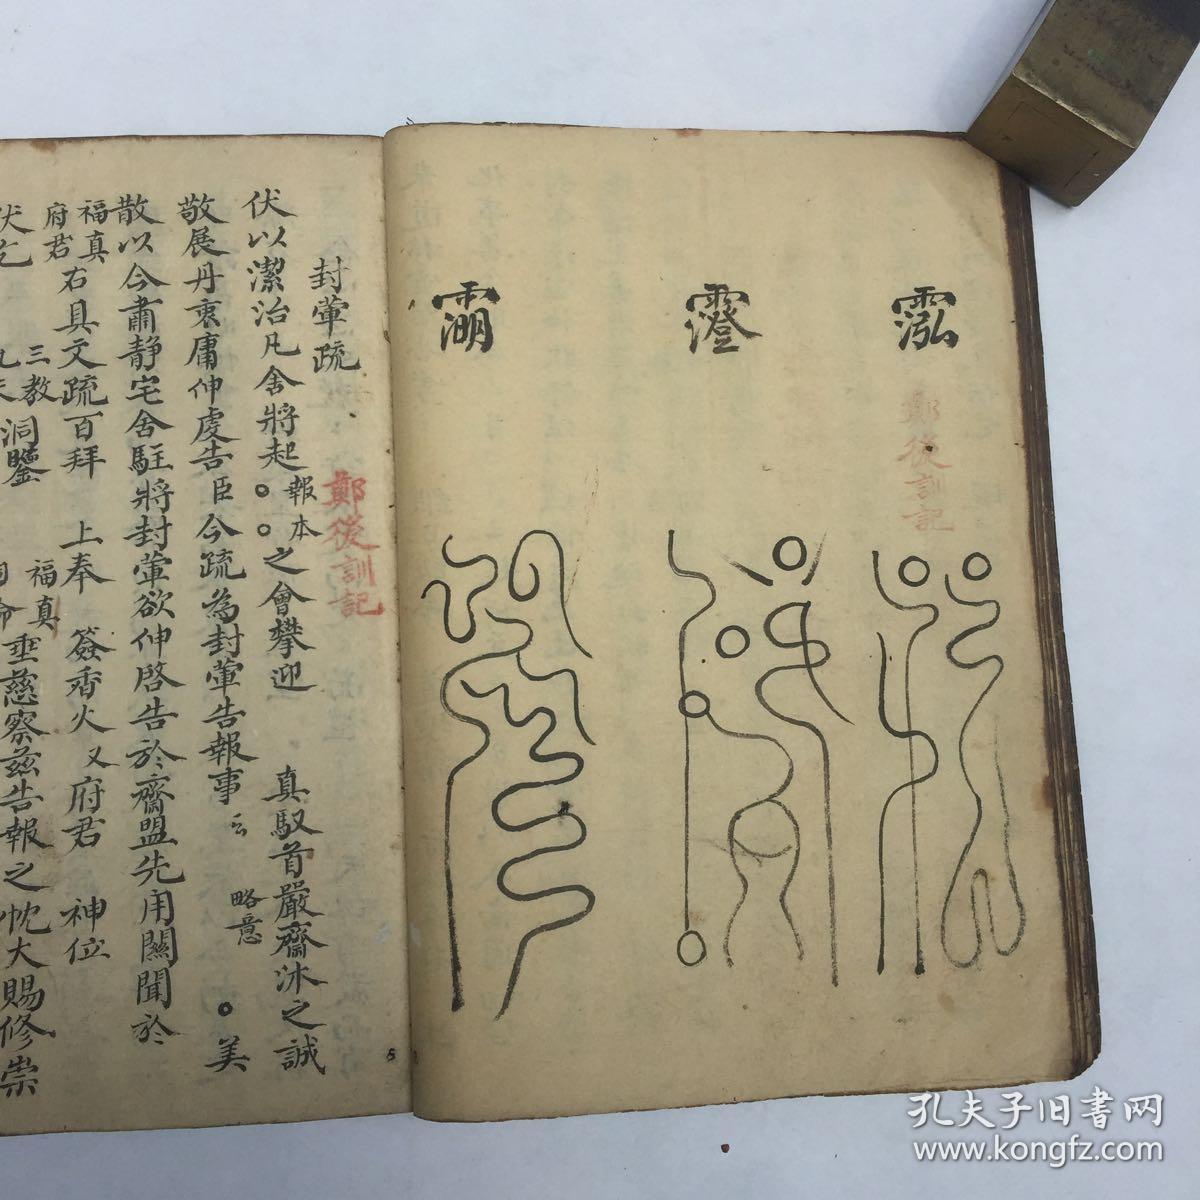 鄭後訓記
封葷疏
鄭後訓記
伏以潔治凡舍將起。。報本之會攀迎 真馭首嚴齋沐之誠
敬展丹衷庸伸虔告臣今疏為封葷告報事云 略意 。美
散以今肅静宅舍駐將封葷欲伸啓告於齋盟先用關聞於
福真府君右具文疏百拜 上奉 簽香火又府君 神位
三教 洞鑒 福真 垂慈察兹告報之忱大賜修崇
伏乞
5
孔夫子旧書网
www.kongfz.com